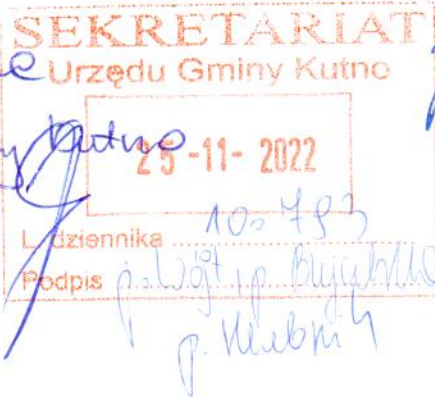 SEKRETARIAT
Urzędu Gminy Kutno
Kutno
25 -11- 2022
L. dziennika 10.793
Podpis p. Wójt, p.
p.